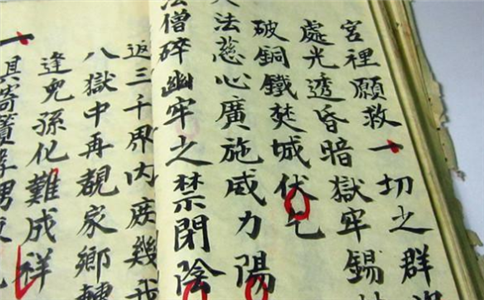 宮裡願救一切之群
處光透昏暗獄牢錫
破銅鐵焚城伏乞
法慈心廣施威力陽
法僧碎幽牢之禁閉陰
返三千界内疾幾
八獄中再覩家鄉轉
逢免孫化難成祥
一具寄男